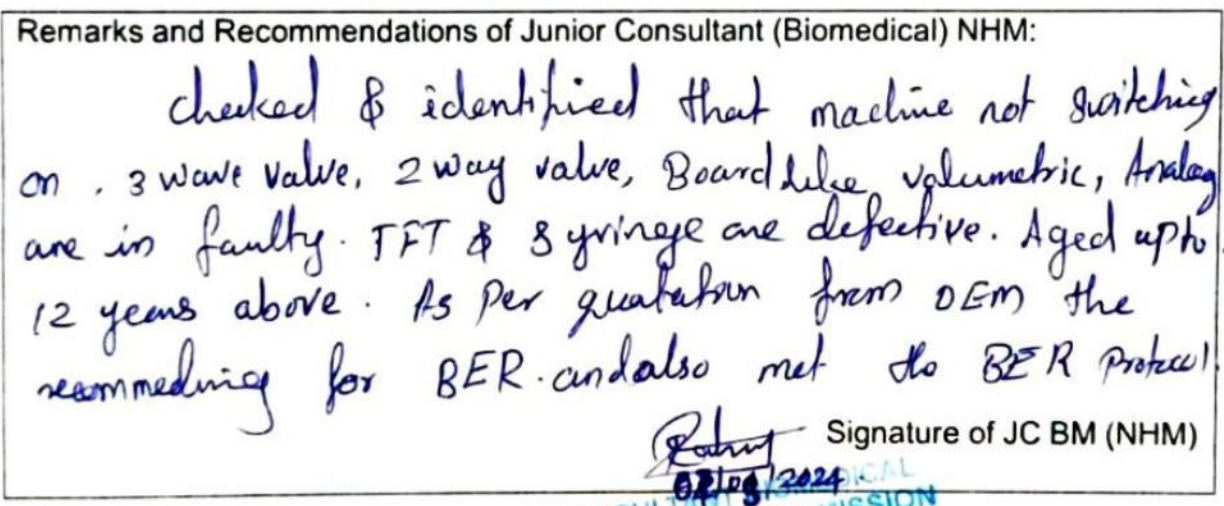 Remarks and Recommendations of Junior Consultant (Biomedical) NHM:
checked & identified that machine not switching
on . 3 wave valve, 2 way valve, Board like volumetric, Analog
are in faulty. TFT & Syringe are defective. Aged upto
12 years above. As Per quatation from OEM the
recommeding for BER. and also met the BER Protocol
Signature of JC BM (NHM)
/2024
ICAL
SSION